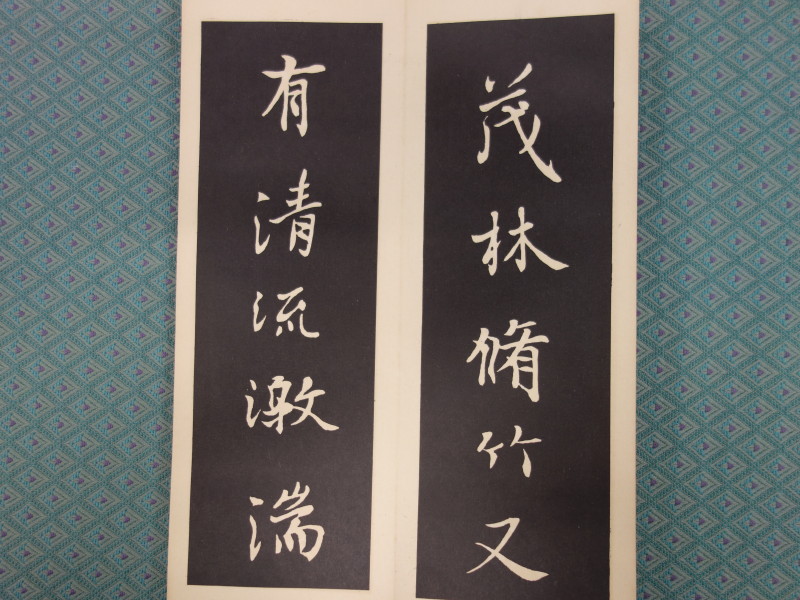 茂林脩竹又
有清流激湍